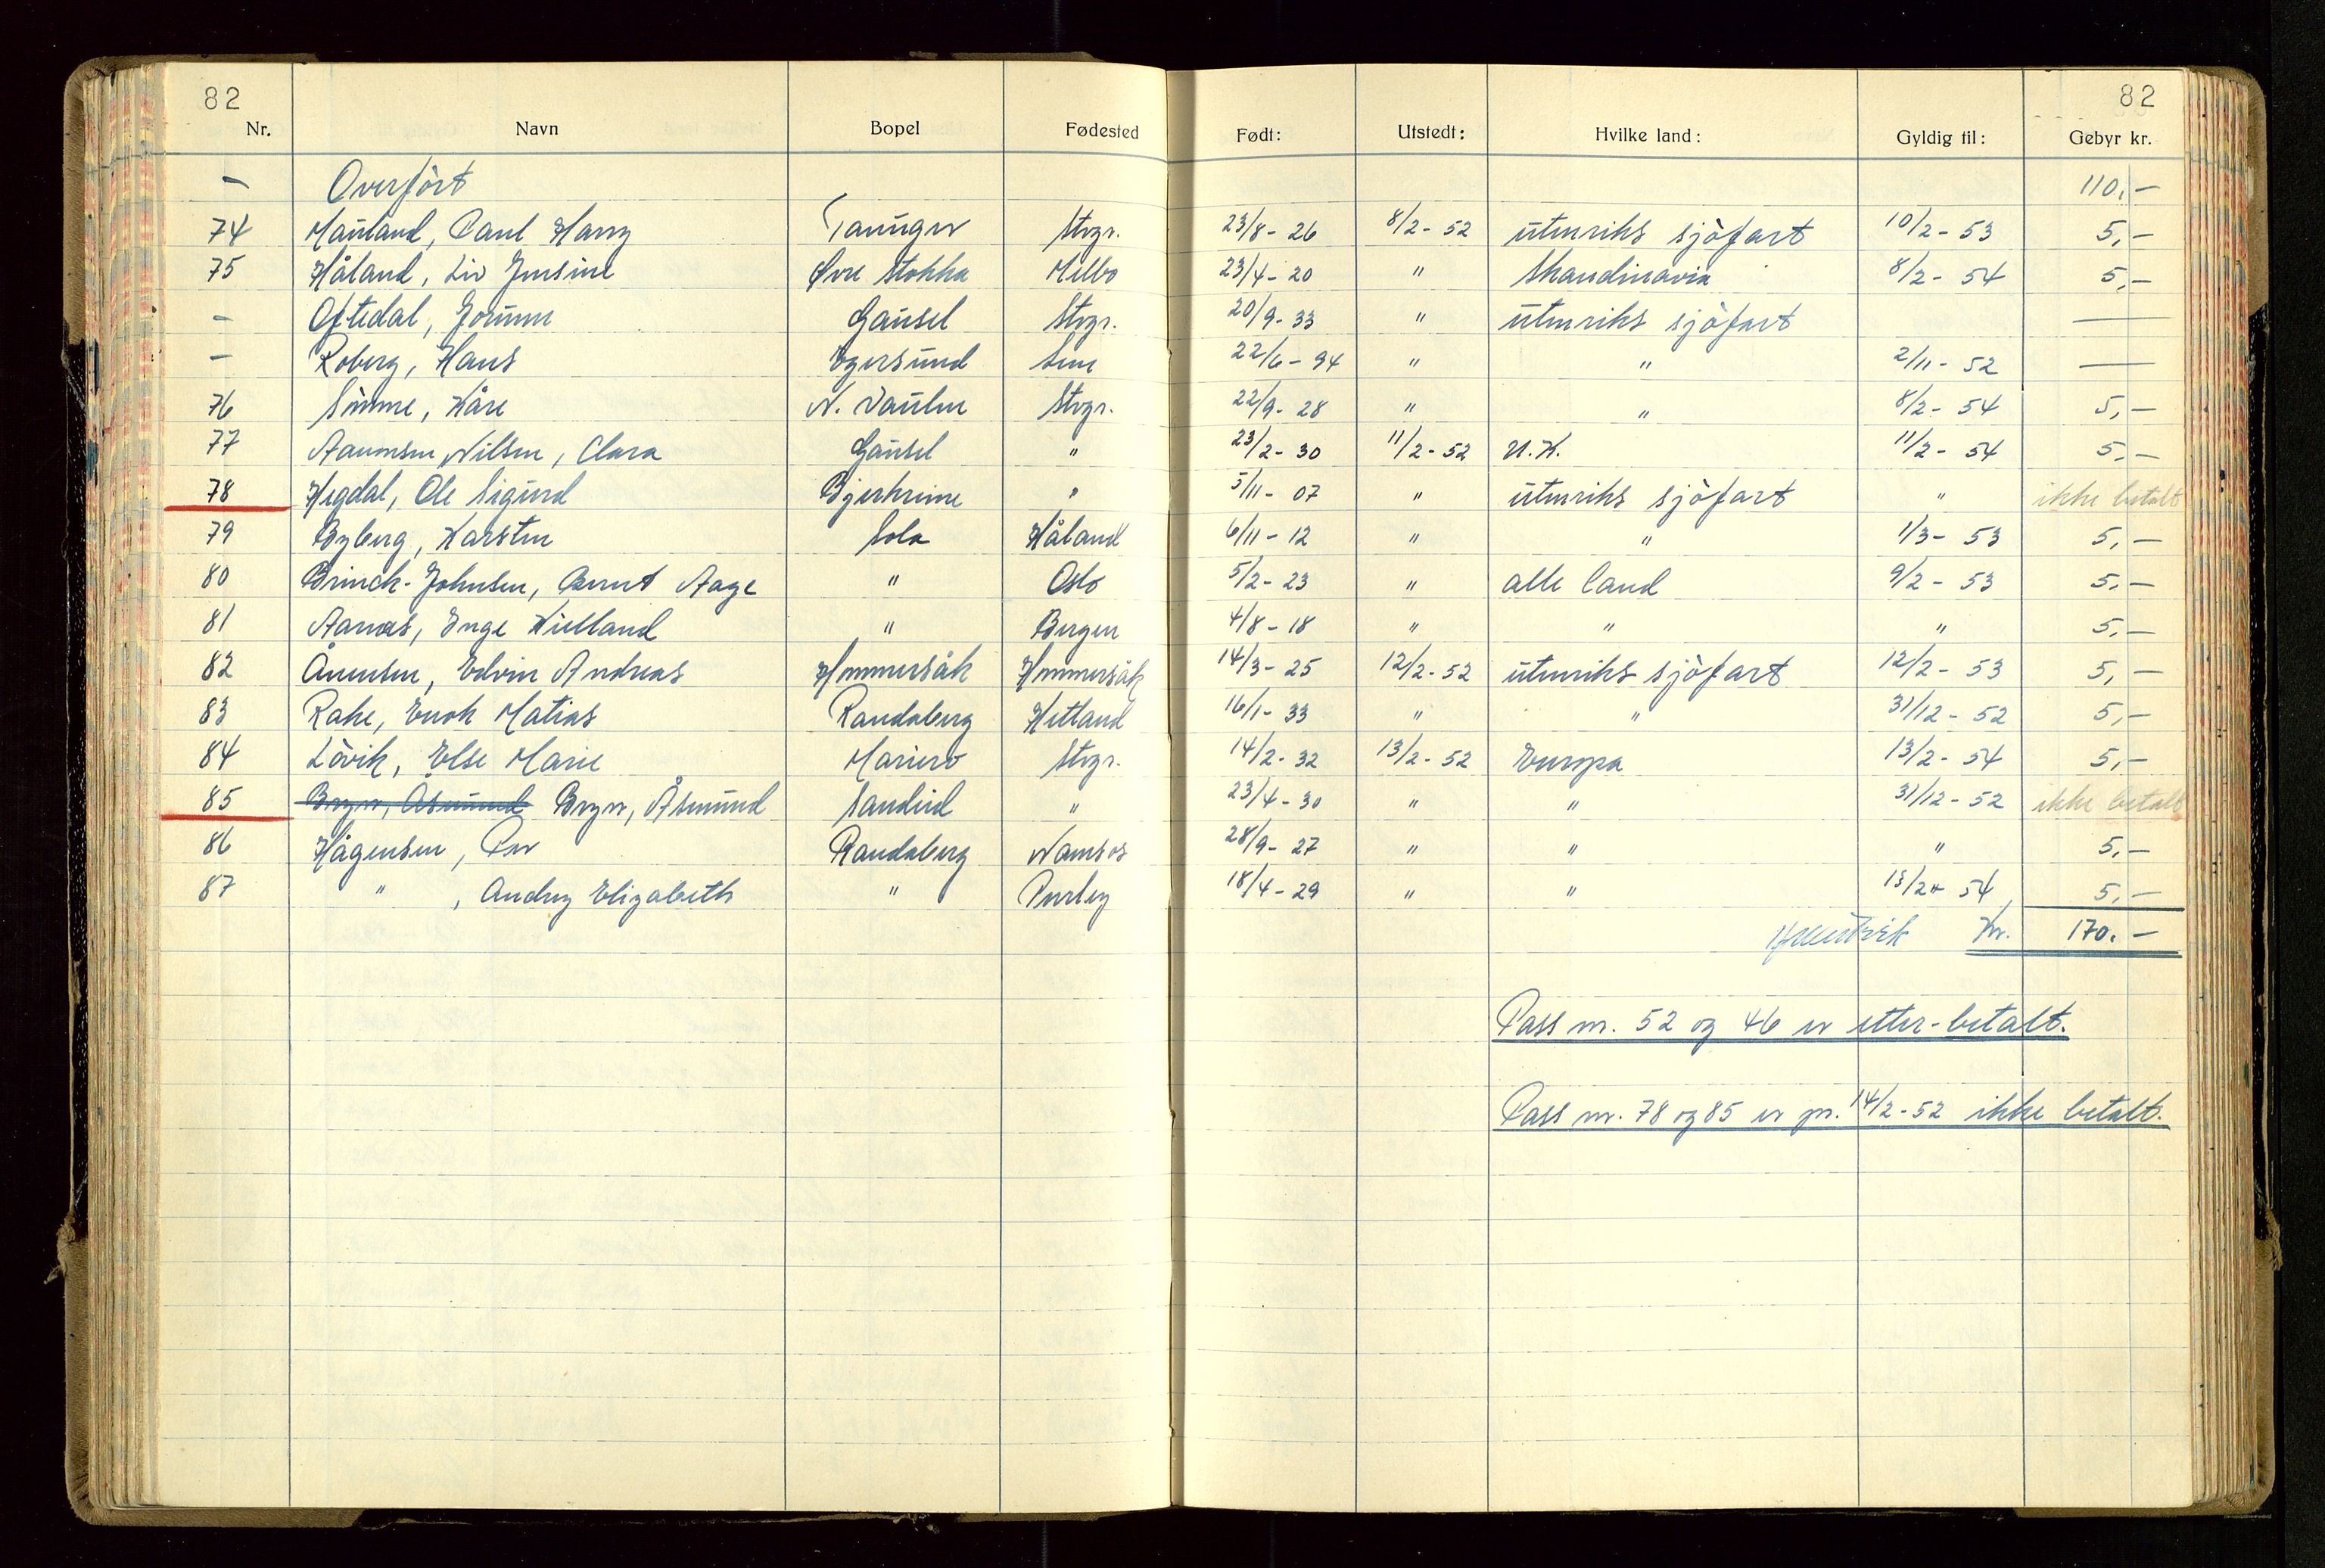 82 82
Nr. Navn Bopel Fødested Født: Utstedt: Hvilke land: Gyldig til: Gebyr kr.
— Overført 110,—
74 Mauland, Paul Harry Tananger Stvgr. 23/8-26 8/2-52 utenriks sjöfart 10/2-53 5,—
75 Håland, Liv Jensine Øvre Stokka Melbo 23/4-20 " Skandinavia 8/2-54 5,—
— Oftedal, Jorunn Gausel Stvgr. 20/9-33 " utenriks sjöfart —
— Roberg, Hans Egersund Sem 22/6-94 " " 2/11-52 —
76 Sömme, Kåre N. Vaulen Stvgr. 22/9-28 " " 8/2-54 5,—
77 Aamonsen Nilsen, Clara Gausel " 23/2-30 11/2-52 U.K. 11/2-54 5,—
78 Hegdal, Ole Sigurd Bjerkreim " 5/11-07 " utenriks sjöfart " ikke betalt
79 Byberg, Karsten Sola Håland 6/11-12 " " 1/3-53 5,—
80 Brinck-Johnsen, Bernt Aage " Oslo 5/2-23 " alle land 9/2-53 5,—
81 Aarnæs, Inge Kielland " Bergen 4/8-18 " " " 5,—
82 Ånensen, Edvin Andreas Hommersåk Hommersåk 14/3-25 12/2-52 utenriks sjöfart 12/2-53 5,—
83 Rake, Enok Matias Randaberg Hetland 16/1-33 " " 31/12-52 5,—
84 Lövik, Else Marie Mariero Stvgr. 14/2-32 13/2-52 Europa 13/2-54 5,—
85 Bryn, Åsmund Bryn, Åsmund Sandeid " 23/4-30 " " 31/12-52 ikke betalt
86 Hågensen, Per Randaberg Namsos 28/9-27 " " " 5,—
87 " , Audrey Elizabeth " Purley 18/4-29 " " 13/2-54 5,—
Kr. 170.—
Pass nr. 52 og 46 er etter-betalt.
Pass nr. 78 og 85 er pr. 14/2-52 ikke betalt.